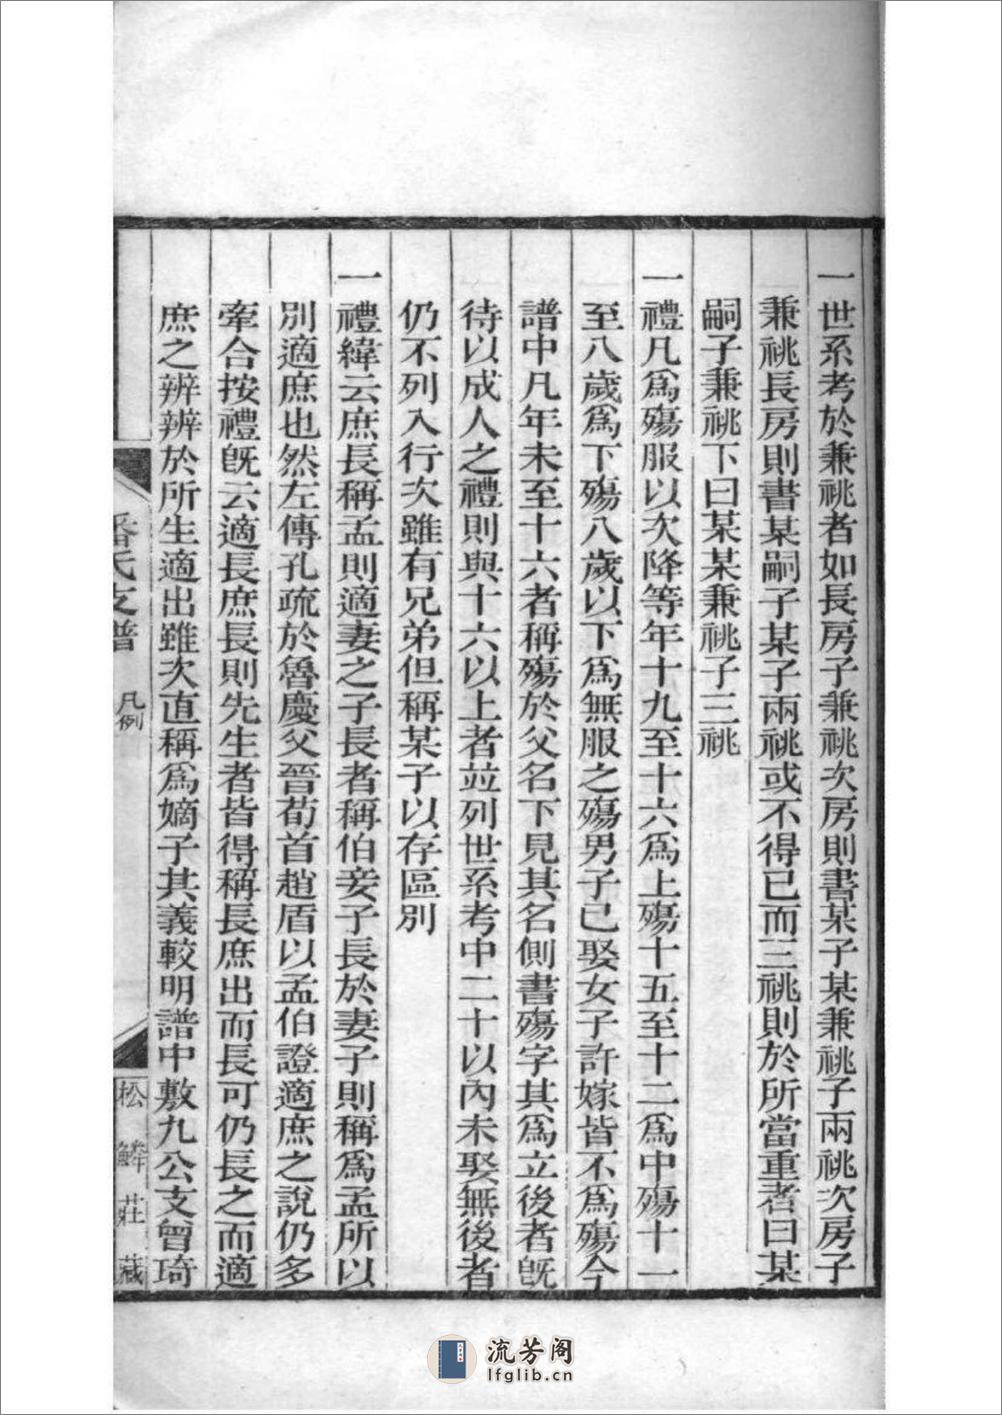 一世系考於兼祧者如長房子兼祧次房則書某子某兼祧子兩祧次房子
兼祧長房則書某嗣子某子兩祧或不得已而三祧則於所當重者曰某
嗣子兼祧下曰某某兼祧子三祧
一禮凡爲殤服以次降等年十九至十六爲上殤十五至十二爲中殤十一
至八歲爲下殤八歲以下爲無服之殤男子已娶女子許嫁皆不爲殤今
譜中凡年未至十六者稱殤於父名下見其名側書殤字其爲立後者旣
待以成人之禮則與十六以上者並列世系考中二十以內未娶無後者
仍不列入行次雖有兄弟但稱某子以存區別
一禮緯云庶長稱孟則適妻之子長者稱伯妾子長於妻子則稱爲孟所以
別適庶也然左傳孔疏於魯慶父晉荀首趙盾以孟伯證適庶之說仍多
牽合按禮旣云適長庶長則先生者皆得稱長庶出而長可仍長之而適
庶之辨辨於所生適出雖次直稱爲嫡子其義較明譜中敷九公支曾琦
潘氏支譜 凡例
松鱗莊藏
流芳阁
lfglib.cn